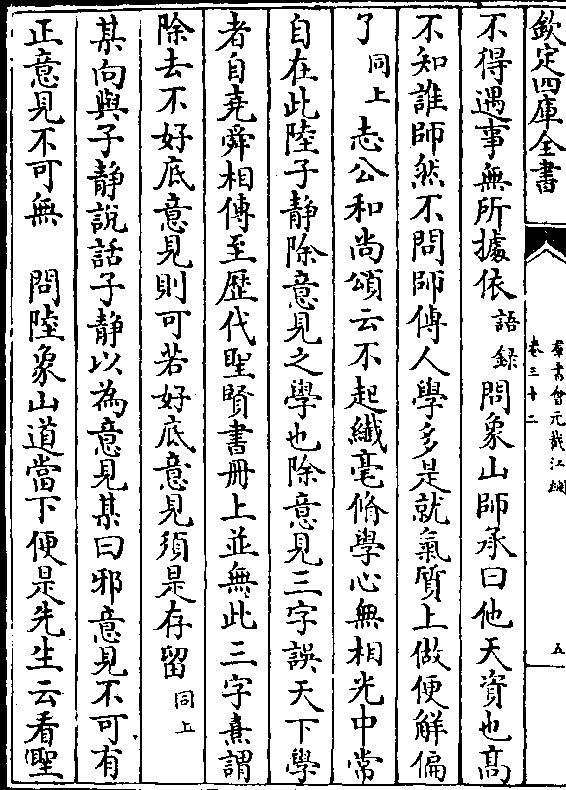 欽定四庫全書
羣書會元截江網
卷三十二
五
不得遇事無所據依語錄問象山師承曰他天資也髙
不知誰師然不問師傳人學多是就氣質上做便觧偏
了同上志公和尚頌云不起纎毫脩學心無相光中常
自在此陸子靜除意見之學也除意見三字誤天下學
者自堯舜相傳至歴代聖賢書冊上並無此三字熹謂
除去不好底意見則可若好底意見須是存留同上
某向與子靜說話子靜以為意見某曰邪意見不可有
正意見不可無　問陸象山道當下便是先生云看聖